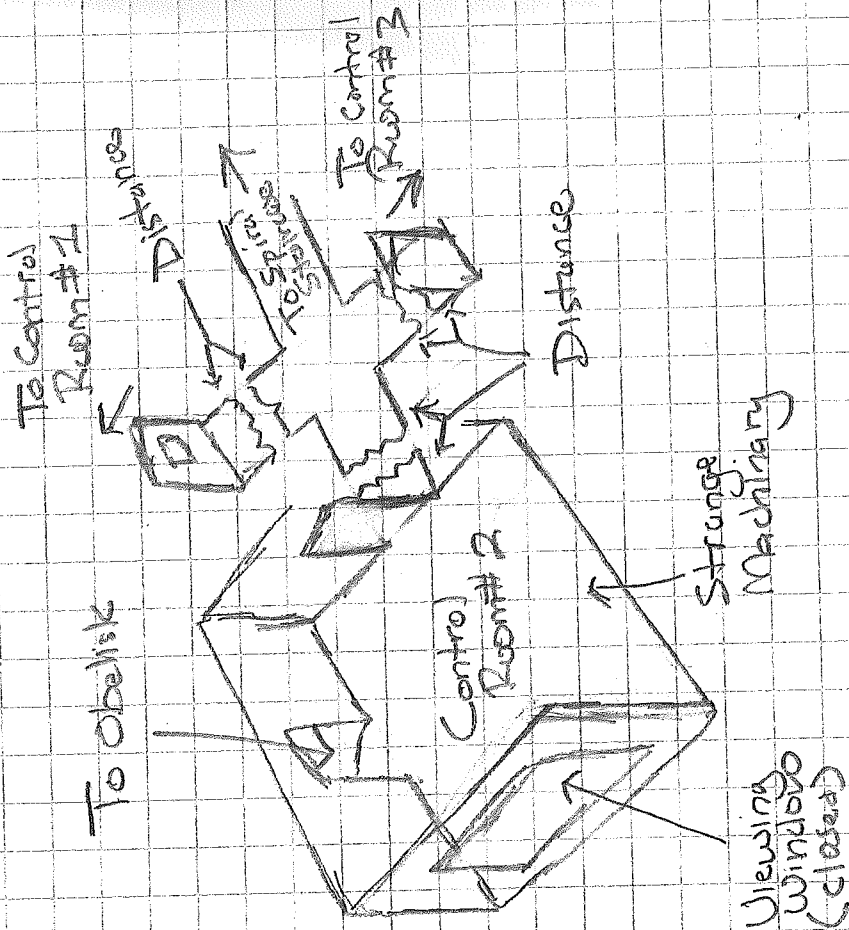 To Control
Room #1
Distance
To Spiral
Staircase
To Control
Room #3
Distance
To Obelisk
Control
Room # 2
Strange
Machinary
Viewing
Window
(closed)